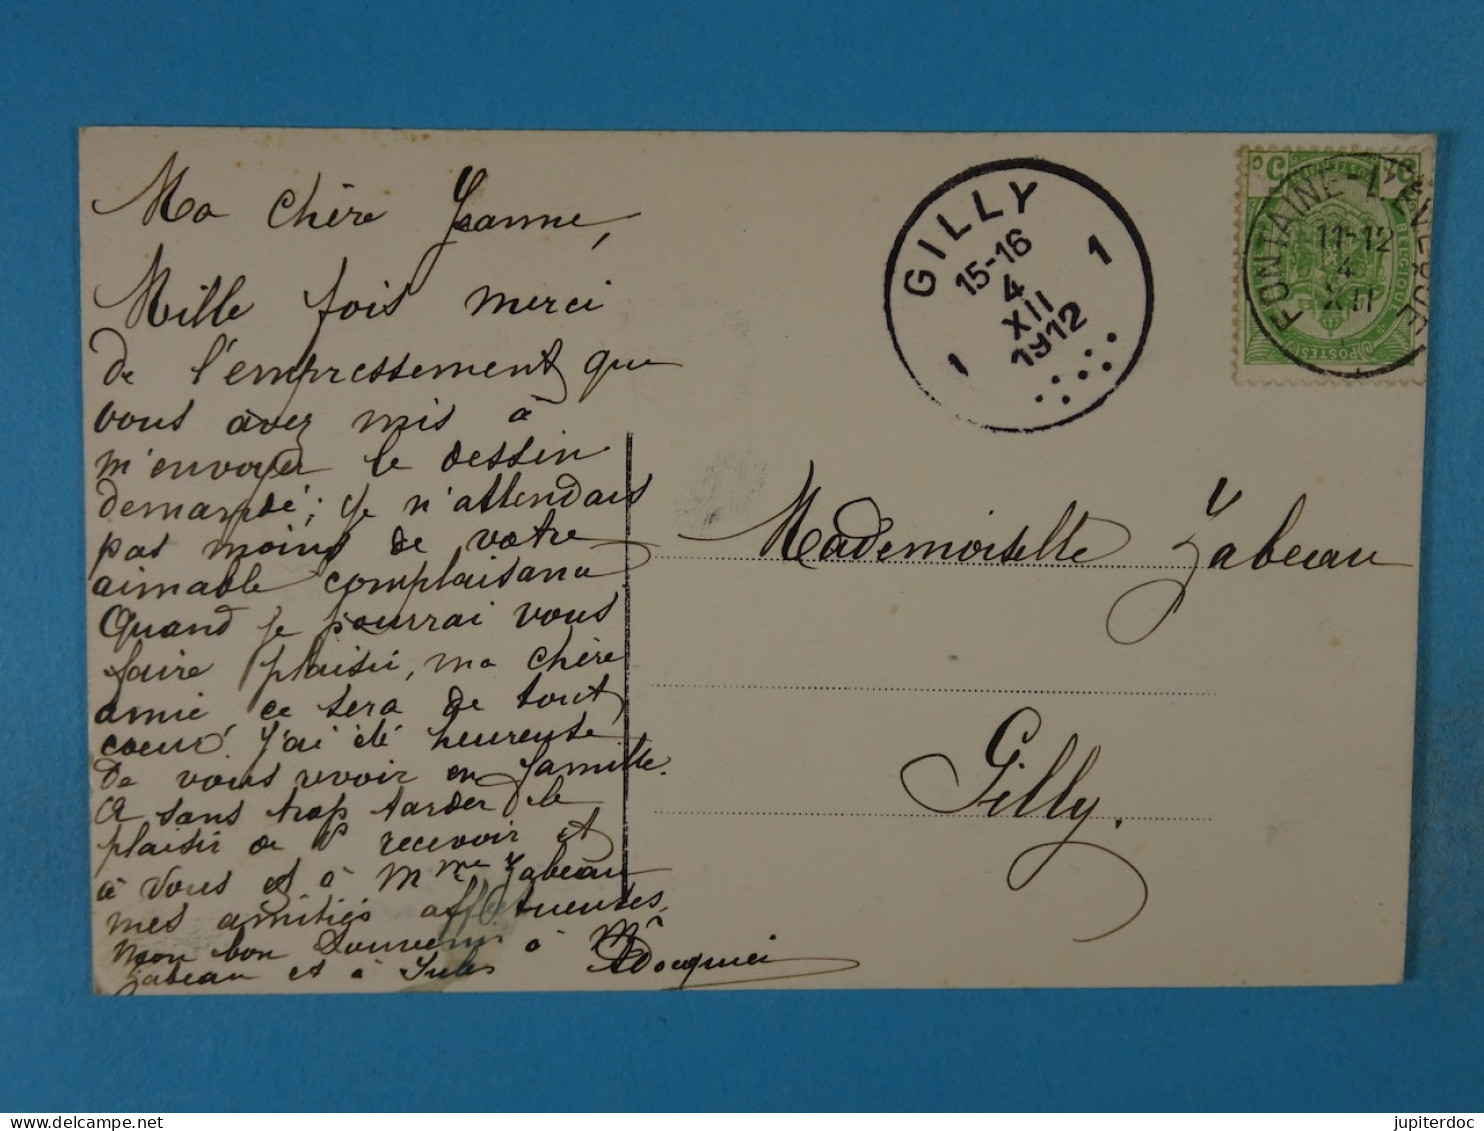 Ma chère Jeanne,
Mille fois merci
de l'empressement que
vous avez mis à
m'envoyer le dessin
demandé; je n'attendais
pas moins de votre
aimable complaisance
Quand je pourrai vous
faire plaisir, ma chère
amie, ce sera de tout
coeur. J'ai été heureuse
de vous revoir en famille.
A sans trop tarder le
plaisir de recevoir et
à vous et à Mme Zabeau
mes amitiés affectueuses,
mon bon souvenir à Mr
Zabeau et à Jules
GILLY
15-16
4
XII
1912
1 1
BELGIQUE
POSTES
5 c 5 c
FONTAINE-L'ÉVÊQUE
11-12
4
XII
Mademoiselle Zabeau
Gilly.
jupiterdoc